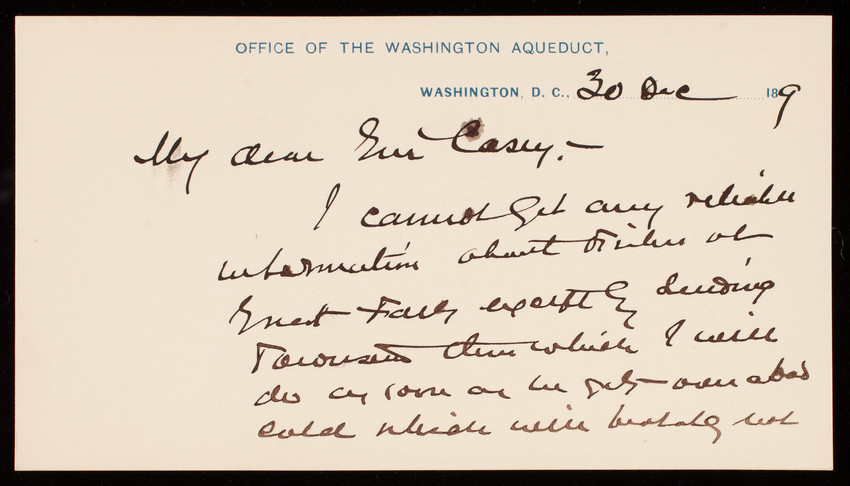 OFFICE OF THE WASHINGTON AQUEDUCT,
WASHINGTON, D. C., 30 Dec 189
My dear Casey,—
I cannot get any reliable
information about at
Great Falls except by sending
Townsend there which I will
do as soon as he gets over a bad
cold which will probably not